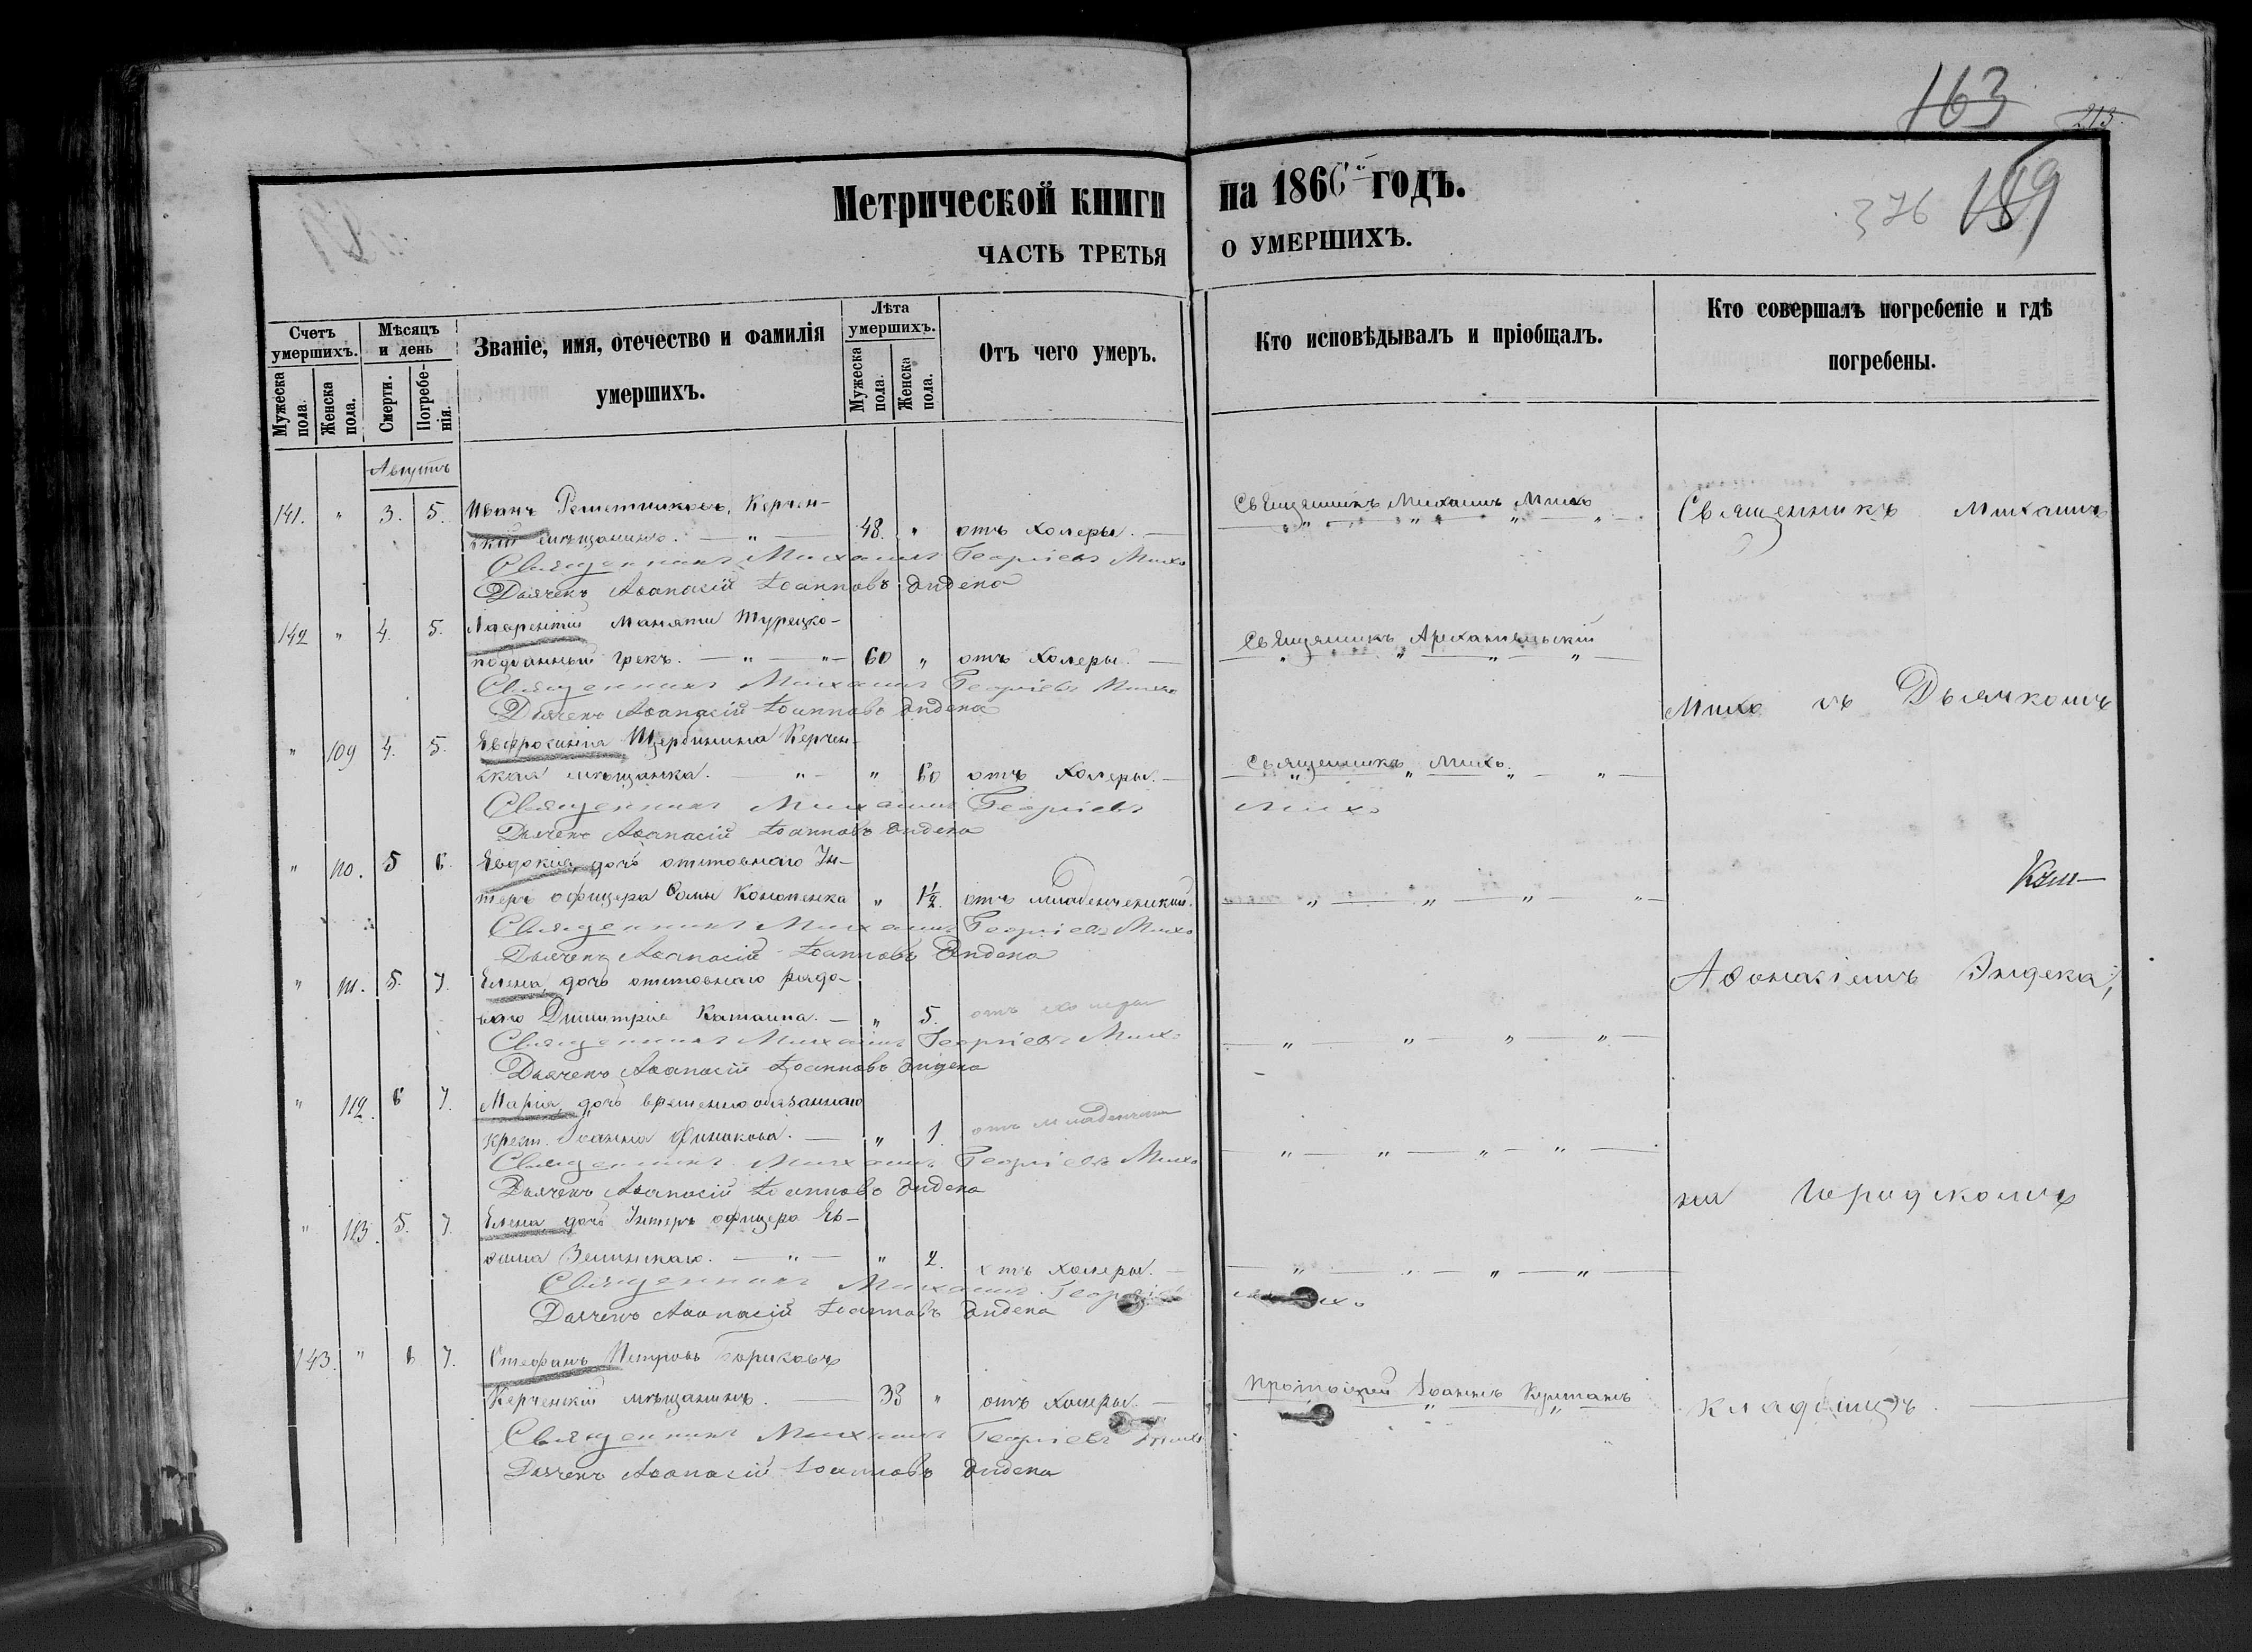 163
213.
Метрической книги на 1866 годъ.
376 189
ЧАСТЬ ТРЕТЬЯ О УМЕРШИХЪ.
Счетъ умершихъ.
Мужеска пола.
Женска пола.
Мѣсяцъ и день
Смерти.
Погребенія.
Званіе, имя, отечество и фамилія умершихъ.
Лѣта умершихъ.
Мужеска пола.
Женска пола.
Отъ чего умеръ.
Кто исповѣдывалъ и пріобщалъ.
Кто совершалъ погребеніе и гдѣ погребены.
Августъ
141. " 3. 5. Иванъ Решетниковъ, Керчен-
скій мѣщанинъ. — " — 48. " отъ холеры. —
Священникъ Михаилъ Михо
Священникъ Михаилъ Георгіевъ Михо
Дьячекъ Аѳанасій Іоанновъ Индека
142 " 4. 5. Лаврентій Маняти Турецко-
подданный грекъ. — " — " — 60 " отъ холеры. —
Священникъ Архангельскій
Священникъ Михаилъ Георгіевъ Михо
Дьячекъ Аѳанасій Іоанновъ Индека
" 109 4. 5. Евфросинія Щербинина Керчен-
ская мѣщанка. " — " 60 отъ холеры. —
Священникъ Михо
Священникъ Михаилъ Георгіевъ Михо
Дьячекъ Аѳанасій Іоанновъ Индека
" 110. 5 6. Евдокія, дочь отставнаго Ун-
теръ офицера Ѳомы Конопенка " 1½. отъ младенческой.
Священникъ Михаилъ Георгіевъ Михо
Дьячекъ Аѳанасій Іоанновъ Индека
" 111. 5. 7. Елена, дочь отставнаго рядо-
ваго Димитрія Катаина. — " 5. отъ холеры
Священникъ Михаилъ Георгіевъ Михо
Дьячекъ Аѳанасій Іоанновъ Индека
" 112. 6 7. Марія, дочь временно обязаннаго
крест. Іоанна Финакова. — " 1. отъ младенческ
Священникъ Михаилъ Георгіевъ Михо
Дьячекъ Аѳанасій Іоанновъ Индека
" 113. 5. 7. Елена, дочь Унтеръ офицера Ев-
Зелинскаго. — " — " 2. отъ холеры. —
Священникъ Михаилъ Георгіевъ Михо
Дьячекъ Аѳанасій Іоанновъ Индека
143. " 6 7. Стефанъ Петровъ
Керченскій мѣщанинъ. — 38 " отъ холеры. —
Протоіерей Іоаннъ
Священникъ Михаилъ Георгіевъ Михо
Дьячекъ Аѳанасій Іоанновъ Индека
Священникъ Михаилъ
Михо съ Дьячкомъ
Аѳанасіемъ Индека,
на городскомъ
кладбищѣ.